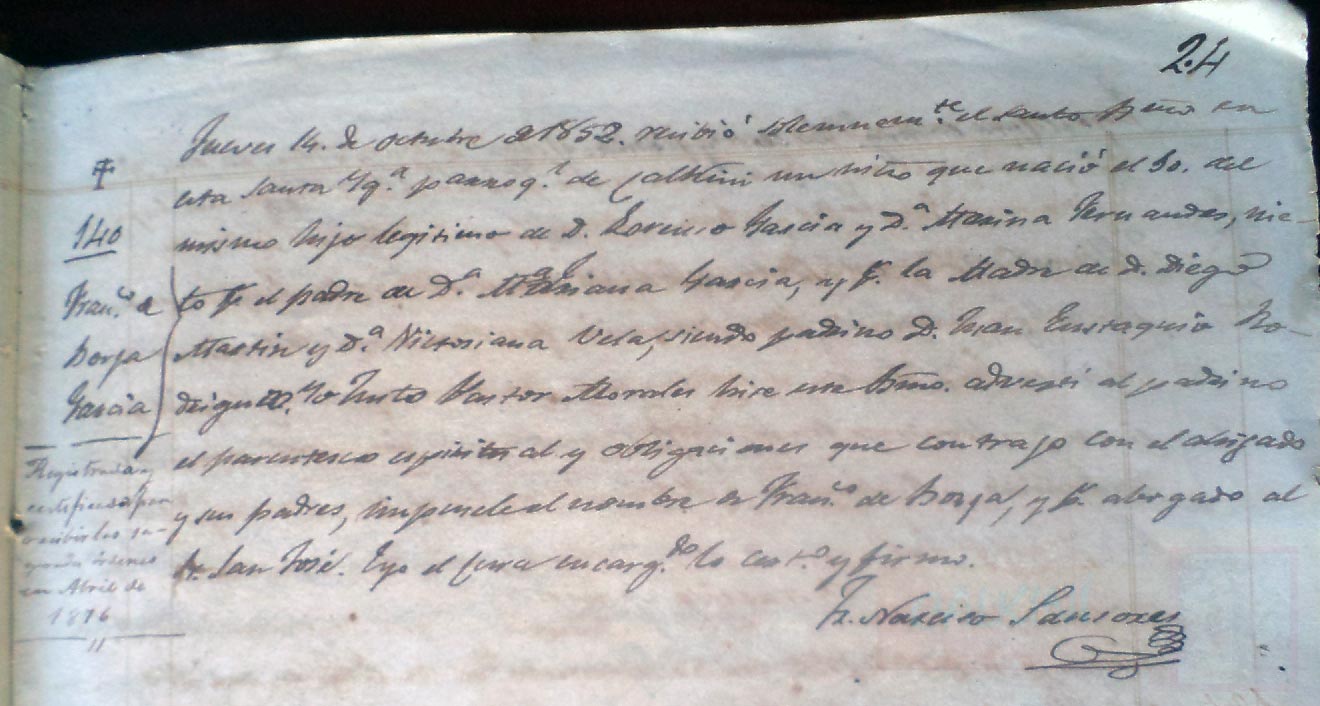 24
Jueves 14. de octubre de 1852. recibió solemnem.te el santo Bmo en
esta Santa Yg.a parroq.l de Calkini un niño que nació el 10. del
mismo hijo legitimo de D. Lorenso Garcia y D.a Marina Fernandes, nie-
to p.r el padre de D.a Mariana Garcia, y p.r la Madre de D. Diego
Martin y D.a Victoriana Vela, siendo padrino D. Juan Eustaquio Ro-
driguez. Yo Justo Pastor Morales hice este Bmo. advertí al padrino
el parentesco espiritual y obligaciones que contrajo con el ahijado
y sus padres, impusele el nombre de Fran.co de Borja, y p.r abogado al
Sr. San José. Eyo el Cura encarg.do lo cert.o y firmo.
Fr. Narciso Sansores
140
Fran.co de
Borja
Garcia
Registrada y
certificada para
recibir las sa-
gradas ordenes
en Abril de
1876